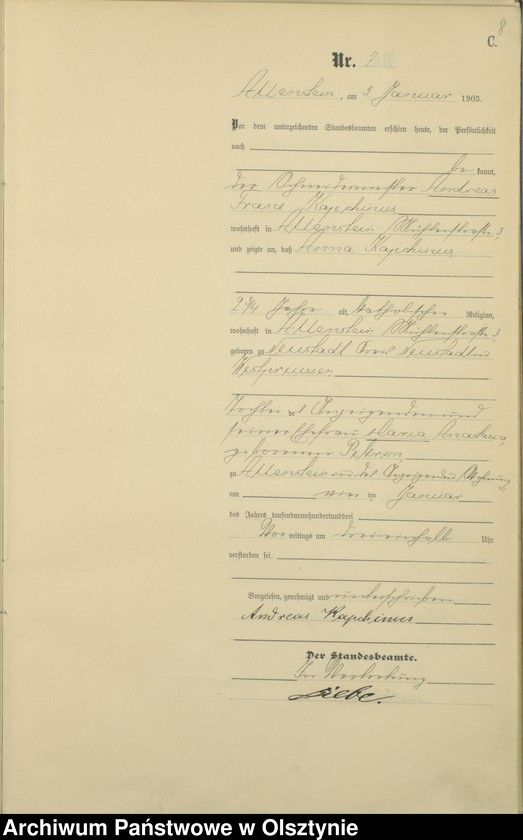 8
C.
Nr. 7
Allenstein, am 3 Januar 1903.
Vor dem unterzeichneten Standesbeamten erschien heute, der Persönlichkeit
nach
be kannt,
der Schneidermeister Andreas
Franz Kapchinus
wohnhaft in Allenstein, Mühlenstraße 3,
und zeigte an, daß Anna Kapchinus
2 3/4 Jahre alt, katholischer Religion,
wohnhaft in Allenstein, Mühlenstraße 3,
geboren zu Neustadt Kreis Neustadt in
Westpreussen
Tochter des Anzeigenden und
seiner Ehefrau Maria
geborenen
zu Allenstein in des Anzeigenden Wohnung
am Januar
des Jahres tausendneunhundertunddrei
Vor mittags um Uhr
verstorben sei.
Vorgelesen, genehmigt und unterschrieben
Andreas Kapchinus
Der Standesbeamte.
In Vertretung
Archiwum Państwowe w Olsztynie